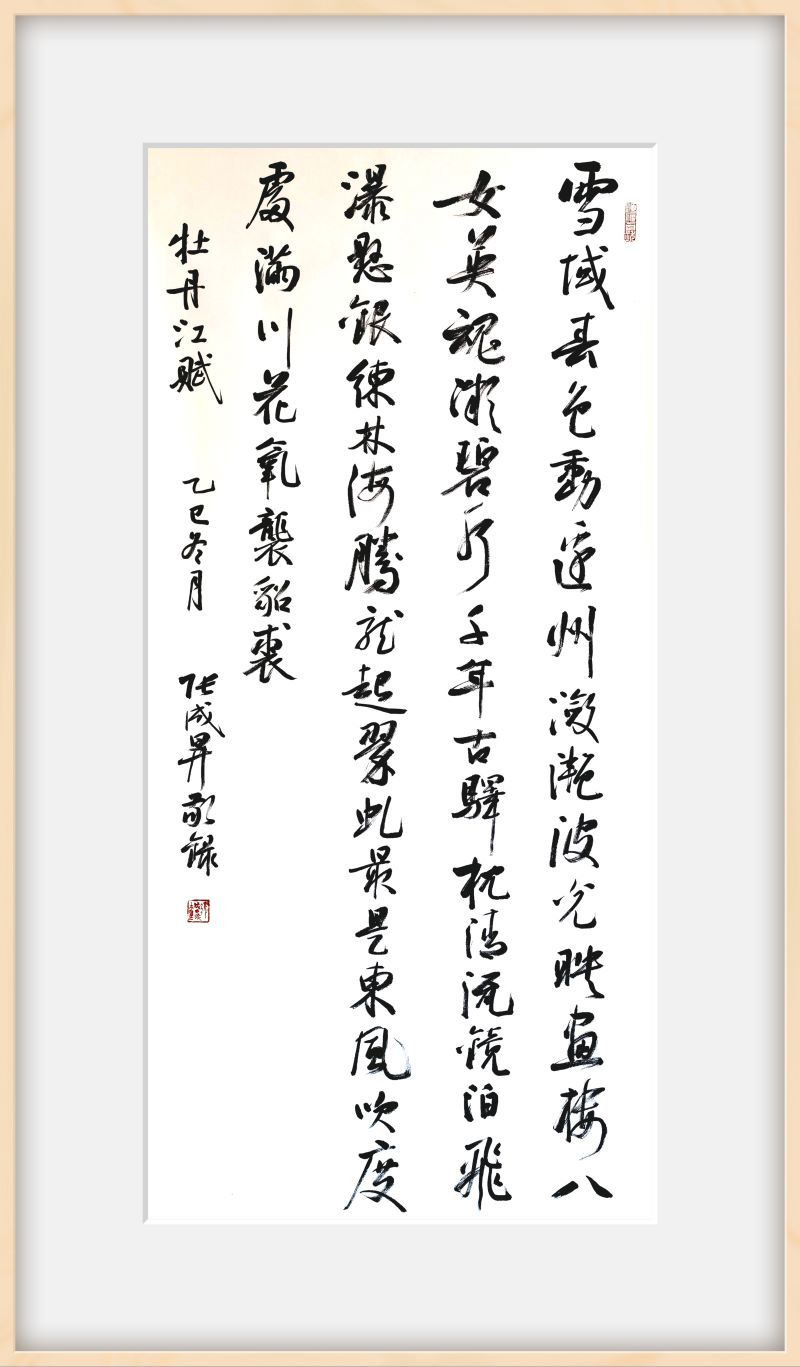 雪域春色動邊州瀲灩波光映畫樓八
女英魂凝碧水千年古驛枕清流鏡泊飛
瀑懸銀練林海騰龍起翠虬最是東風吹度
處滿川花氣襲貂裘
牡丹江賦 乙巳冬月 張成昇敬錄